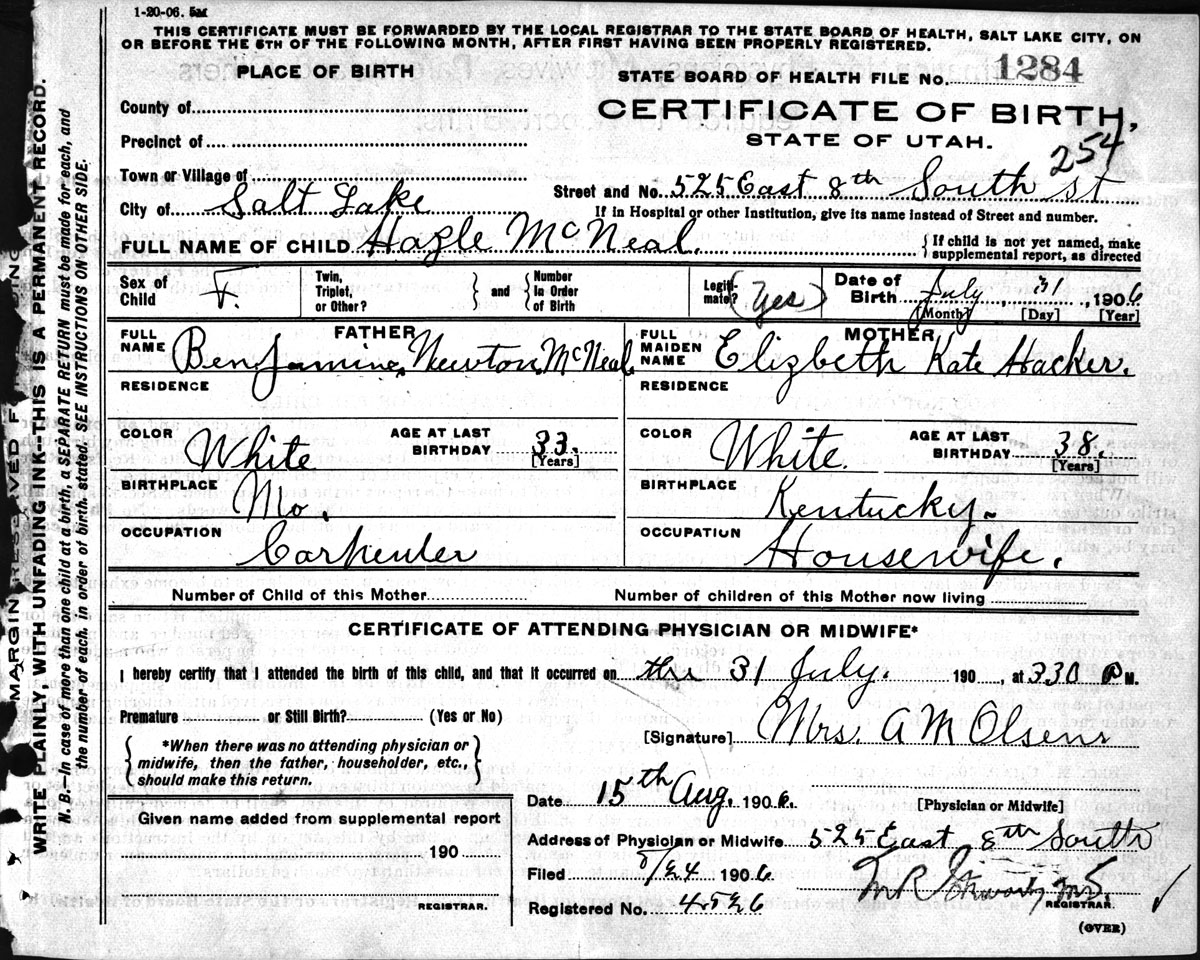 1-20-06. 5M
THIS CERTIFICATE MUST BE FORWARDED BY THE LOCAL REGISTRAR TO THE STATE BOARD OF HEALTH, SALT LAKE CITY, ON
OR BEFORE THE 5TH OF THE FOLLOWING MONTH, AFTER FIRST HAVING BEEN PROPERLY REGISTERED.
PLACE OF BIRTH
STATE BOARD OF HEALTH FILE No. 1284
County of
CERTIFICATE OF BIRTH,
Precinct of
STATE OF UTAH.
254
Town or Village of
Street and No. 525 East 8th South St
City of Salt Lake
If in Hospital or other Institution, give its name instead of Street and number.
FULL NAME OF CHILD Hazle McNeal.
{If child is not yet named, make
supplemental report, as directed
Sex of Child F.
Twin, Triplet, or Other? } and { Number In Order of Birth
Legitimate? (Yes)
Date of Birth July, 31, 1906
[Month] [Day] [Year]
FATHER
FULL NAME Benjamine Newton McNeal.
MOTHER
FULL MAIDEN NAME Elizbeth Kate Hacker.
RESIDENCE
RESIDENCE
COLOR White
AGE AT LAST BIRTHDAY 33.
[Years]
COLOR White.
AGE AT LAST BIRTHDAY 38.
[Years]
BIRTHPLACE Mo.
BIRTHPLACE Kentucky.
OCCUPATION Carpenter
OCCUPATION Housewife.
Number of Child of this Mother
Number of children of this Mother now living
CERTIFICATE OF ATTENDING PHYSICIAN OR MIDWIFE*
I hereby certify that I attended the birth of this child, and that it occurred on the 31 July. 190 , at 330 P M.
Premature or Still Birth? (Yes or No)
[Signature] Mrs. A M Olsen
{*When there was no attending physician or
midwife, then the father, householder, etc.,
should make this return.}
Date 15th Aug. 1906.
[Physician or Midwife]
Given name added from supplemental report
190
REGISTRAR.
Address of Physician or Midwife 525 East 8th South
Filed 8/24 1906
Registered No.
REGISTRAR.
(OVER)
MARGIN RESERVED
WRITE PLAINLY, WITH UNFADING INK—THIS IS A PERMANENT RECORD.
N. B.—In case of more than one child at a birth, a SEPARATE RETURN must be made for each, and
the number of each, in order of birth, stated. SEE INSTRUCTIONS ON OTHER SIDE.